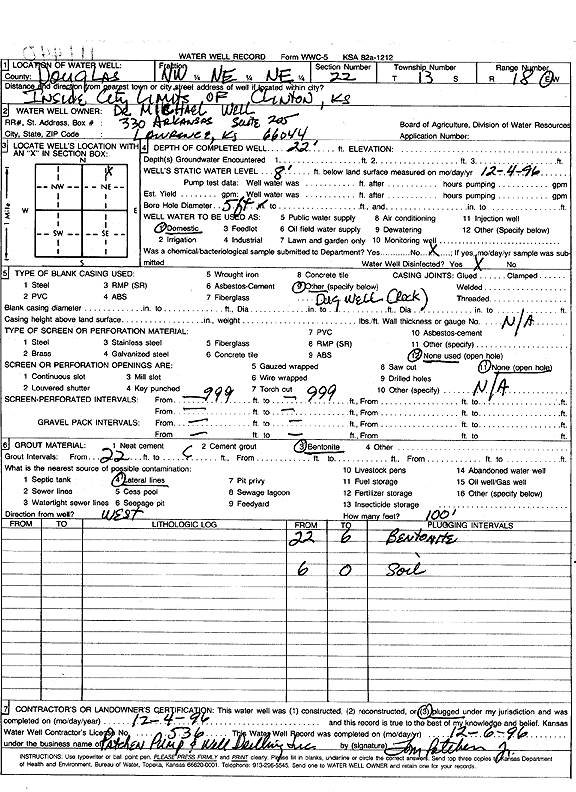 WATER WELL RECORD Form WWC-5 KSA 82a-1212
1 LOCATION OF WATER WELL: Fraction Section Number Township Number Range Number
County: Douglas NW ¼ NE ¼ NE ¼ 22 T 13 S R 18 E/W
Distance and direction from nearest town or city street address of well if located within city?
Inside City Limits of Clinton, KS
2 WATER WELL OWNER: Dr Michael Well
RR#, St. Address, Box # : 330 Arkansas Suite 205 Board of Agriculture, Division of Water Resources
City, State, ZIP Code : Lawrence, KS 66044 Application Number:
3 LOCATE WELL'S LOCATION WITH AN "X" IN SECTION BOX:
N
X
NW NE
W E
SW SE
S
1 Mile
4 DEPTH OF COMPLETED WELL 22' ft. ELEVATION:
Depth(s) Groundwater Encountered 1. ft. 2. ft. 3. ft.
WELL'S STATIC WATER LEVEL 8' ft. below land surface measured on mo/day/yr 12-4-96
Pump test data: Well water was ft. after hours pumping gpm
Est. Yield gpm: Well water was ft. after hours pumping gpm
Bore Hole Diameter 5ft in. to ft., and in. to ft.
WELL WATER TO BE USED AS: 5 Public water supply 8 Air conditioning 11 Injection well
1 Domestic 3 Feedlot 6 Oil field water supply 9 Dewatering 12 Other (Specify below)
2 Irrigation 4 Industrial 7 Lawn and garden only 10 Monitoring well
Was a chemical/bacteriological sample submitted to Department? Yes No X; If yes, mo/day/yr sample was sub-
mitted Water Well Disinfected? Yes X No
5 TYPE OF BLANK CASING USED: 5 Wrought iron 8 Concrete tile CASING JOINTS: Glued Clamped
1 Steel 3 RMP (SR) 6 Asbestos-Cement 9 Other (specify below) Welded
2 PVC 4 ABS 7 Fiberglass Dug Well (Rock) Threaded
Blank casing diameter in. to ft., Dia in. to ft., Dia in. to ft.
Casing height above land surface in., weight lbs./ft. Wall thickness or gauge No. N/A
TYPE OF SCREEN OR PERFORATION MATERIAL: 7 PVC 10 Asbestos-cement
1 Steel 3 Stainless steel 5 Fiberglass 8 RMP (SR) 11 Other (specify)
2 Brass 4 Galvanized steel 6 Concrete tile 9 ABS 12 None used (open hole)
SCREEN OR PERFORATION OPENINGS ARE: 5 Gauzed wrapped 8 Saw cut 11 None (open hole)
1 Continuous slot 3 Mill slot 6 Wire wrapped 9 Drilled holes
2 Louvered shutter 4 Key punched 7 Torch cut 10 Other (specify) N/A
SCREEN-PERFORATED INTERVALS: From 999 ft. to 999 ft., From ft. to ft.
From ft. to ft., From ft. to ft.
GRAVEL PACK INTERVALS: From ft. to ft., From ft. to ft.
From ft. to ft., From ft. to ft.
6 GROUT MATERIAL: 1 Neat cement 2 Cement grout 3 Bentonite 4 Other
Grout Intervals: From 22 ft. to ft., From ft. to ft., From ft. to ft.
What is the nearest source of possible contamination: 10 Livestock pens 14 Abandoned water well
1 Septic tank 4 Lateral lines 7 Pit privy 11 Fuel storage 15 Oil well/Gas well
2 Sewer lines 5 Cess pool 8 Sewage lagoon 12 Fertilizer storage 16 Other (specify below)
3 Watertight sewer lines 6 Seepage pit 9 Feedyard 13 Insecticide storage
Direction from well? West How many feet? 100'
FROM TO LITHOLOGIC LOG FROM TO PLUGGING INTERVALS
22 6 Bentonite
6 0 Soil
7 CONTRACTOR'S OR LANDOWNER'S CERTIFICATION: This water well was (1) constructed, (2) reconstructed, or (3) plugged under my jurisdiction and was
completed on (mo/day/year) 12-4-96 and this record is true to the best of my knowledge and belief. Kansas
Water Well Contractor's License No. 536 This Water Well Record was completed on (mo/day/yr) 12-6-96
under the business name of Patchen Pump & Well Drilling Inc. by (signature) Tom Patchen Jr.
INSTRUCTIONS: Use typewriter or ball point pen. PLEASE PRESS FIRMLY and PRINT clearly. Please fill in blanks, underline or circle the correct answers. Send top three copies to Kansas Department
of Health and Environment, Bureau of Water, Topeka, Kansas 66620-0001. Telephone: 913-296-5545. Send one to WATER WELL OWNER and retain one for your records.